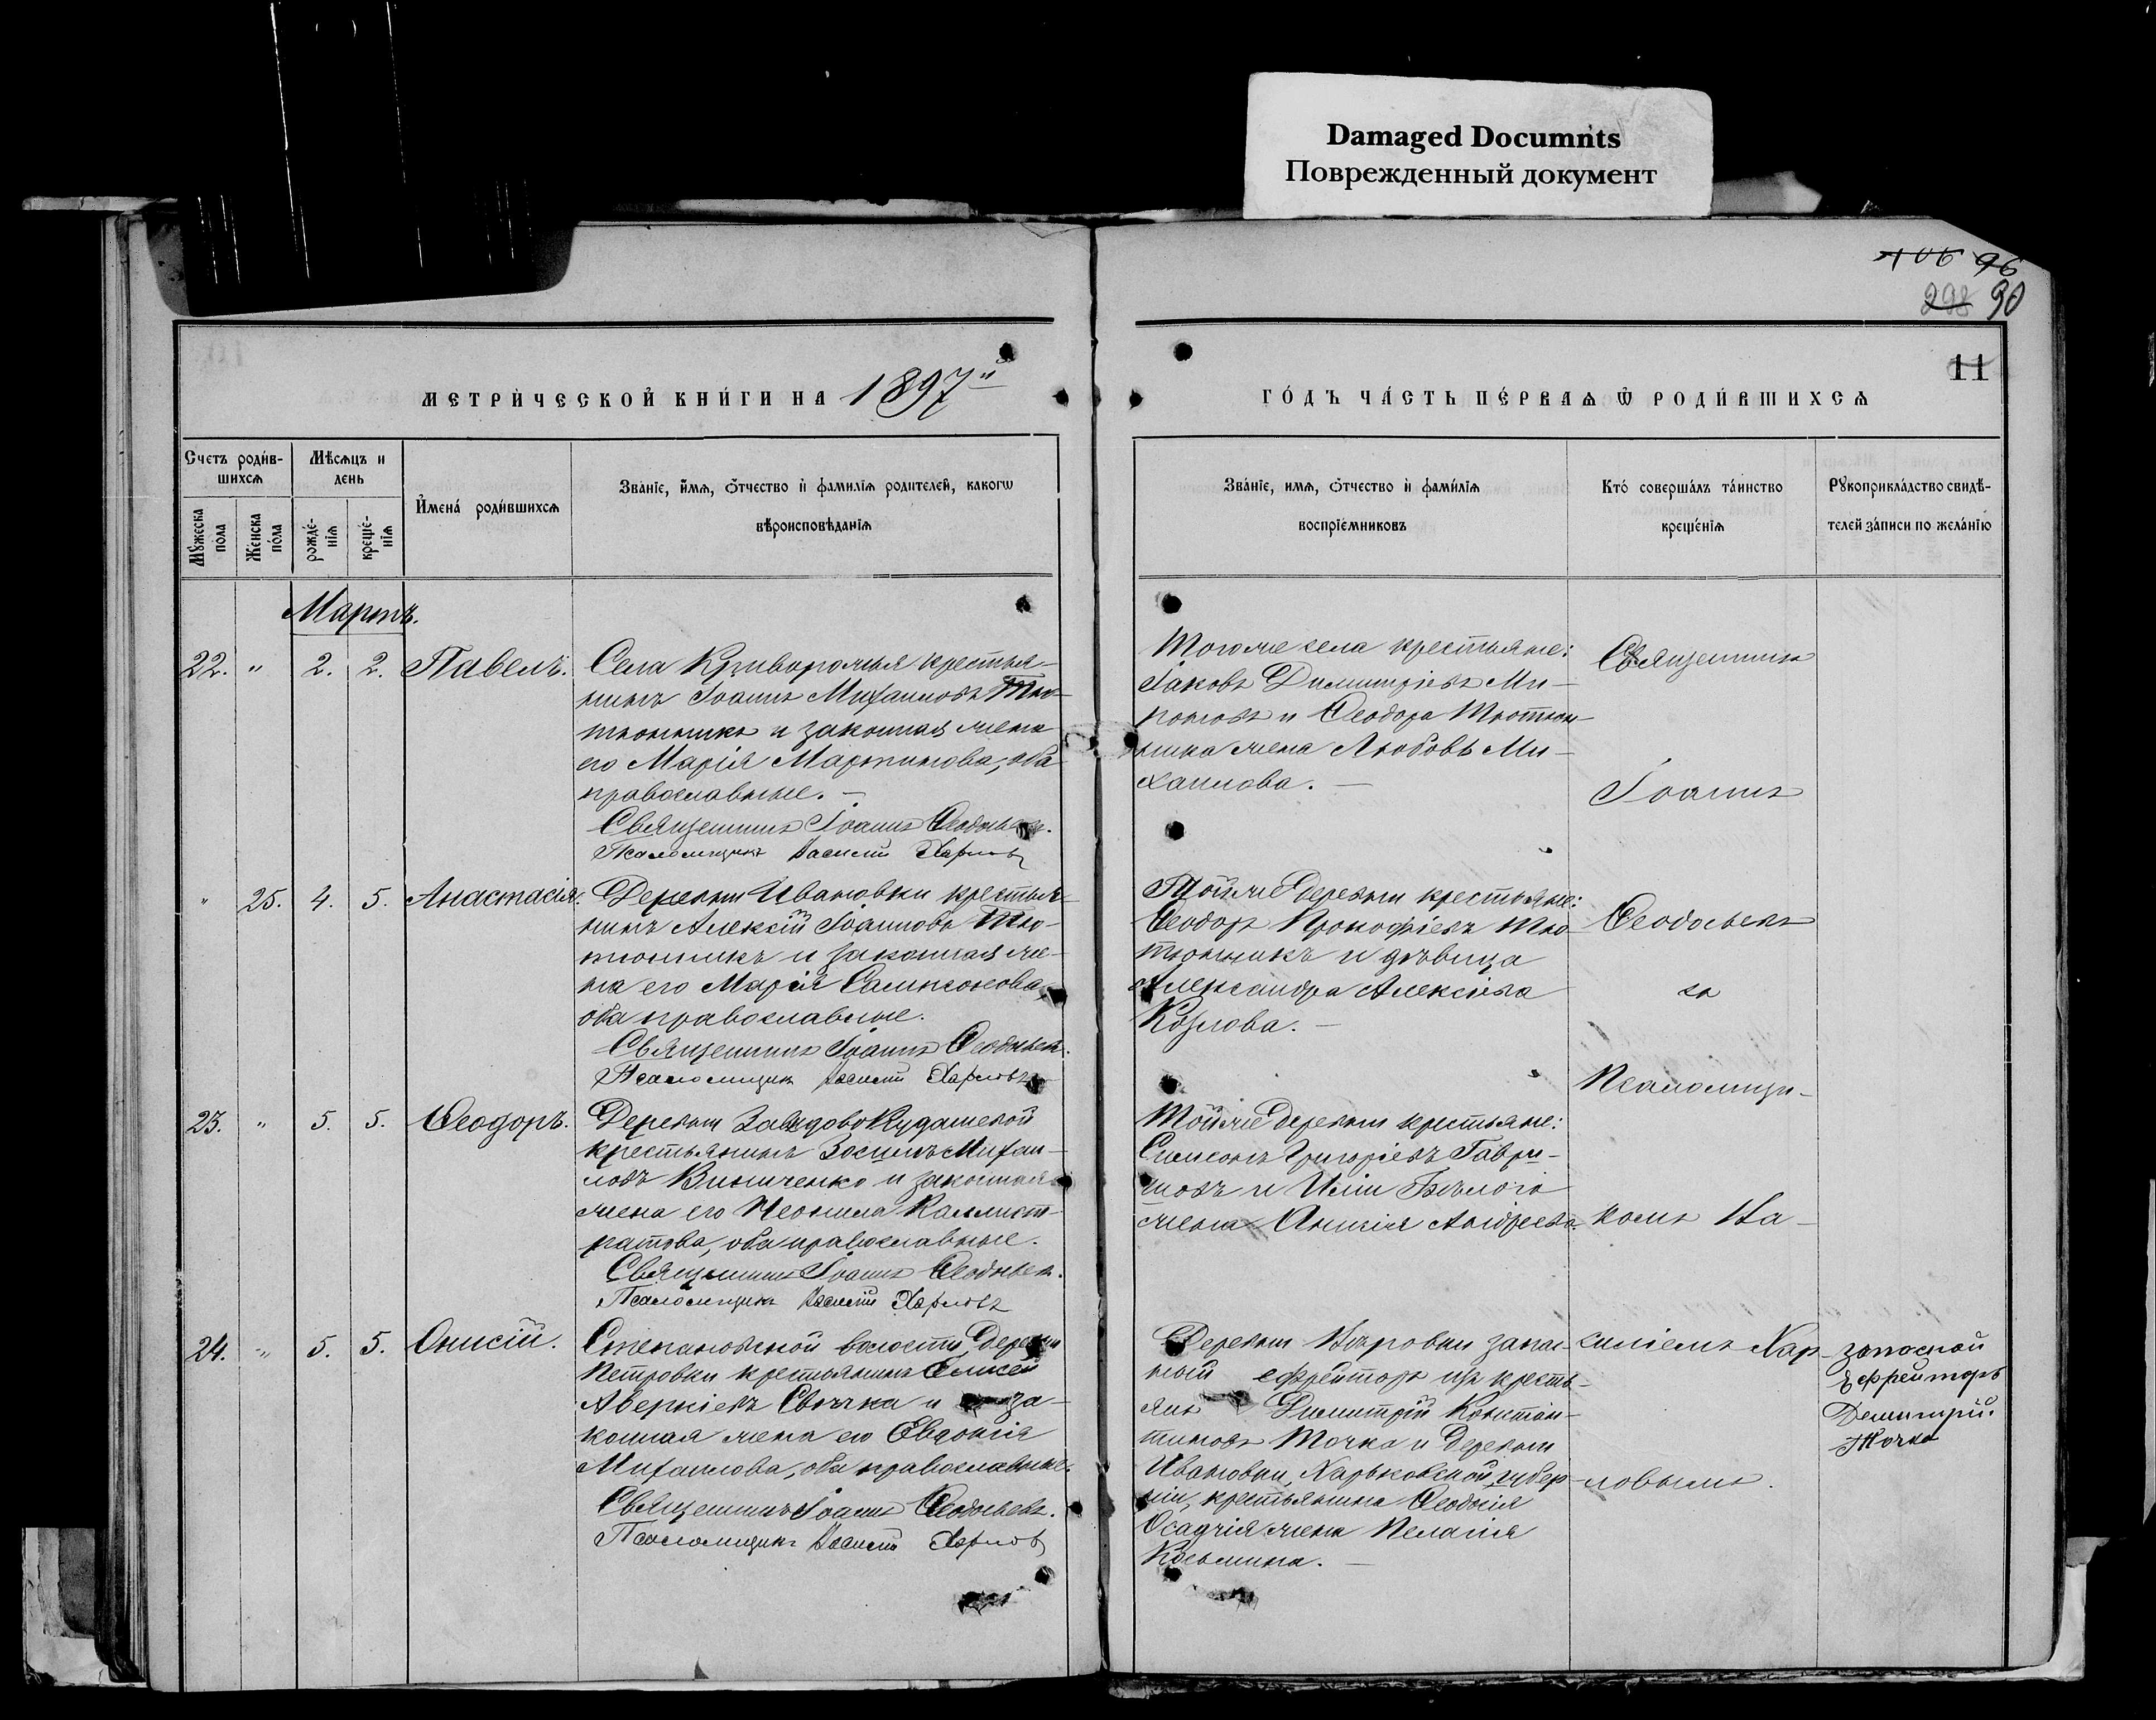 Damaged Documnts
Поврежденный документ
106 96
298 90
11
МЕТРИ́ЧЕСКОЙ КНИ́ГИ НА 1897й
ГО́ДЪ ЧА́СТЬ ПЕ́РВАѦ Ѿ РОДИ́ВШИХСѦ
Счетъ роди́в-
шихсѧ
Мꙋ́жеска
по́ла
Же́нска
по́ла
Мѣ́сѧцъ и
день
рожде́-
нїѧ
креще́-
нїѧ
Имена́ роди́вшихсѧ
Зва́нїе, и́мѧ, ѻ́тчество ѝ фами́лїѧ роди́телей, какогѡ
вѣроисповѣ́данїѧ
Зва́нїе, имѧ, ѻ́тчество ѝ фами́лїѧ
воспрїе́мниковъ
Кто́ соверша́лъ та́инство
креще́нїѧ
Рꙋкоприкла́дство свидѣ́-
телей за́писи по жела́нїю
Мартъ.
22. " 2. 2. Павелъ.
Села Криворожья крестья-
нинъ Іоаннъ Михаиловъ Тю-
тюнникъ и законная жена
его Марія Мартинова, оба
православные. —
Священникъ Іоаннъ Ѳеодосьевъ.
Псаломщикъ Василій Харловъ
Тогоже села крестьяне:
Іаковъ Димитріевъ Ми-
роновъ и Ѳеодора Тютюн-
ника жена Любовь Ми-
хаилова. —
" 25. 4. 5. Анастасія.
Деревни Ивановки крестья-
нинъ Алексій Іоанновъ Тю-
тюнникъ и законная же-
на его Марія Сампсонова,
оба православные.
Священникъ Іоаннъ Ѳеодосьевъ.
Псаломщикъ Василій Харловъ
Тойже деревни крестьяне:
Ѳеодоръ Прокофіевъ Тю-
тюнникъ и дѣвица
Александра Алексіева
Козлова. —
23. " 5. 5. Ѳеодоръ.
Деревни Завадово Кудашевой
крестьянинъ Зосимъ Михаи-
ловъ Винниченко и законная
жена его Неонила Каллист-
ратова, оба православные.
Священникъ Іоаннъ Ѳеодосьевъ.
Псаломщикъ Василій Харловъ
Тойже деревни крестьяне:
Симеонъ Григоріевъ Гаври-
ловъ и Иліи Бѣлого
жена Анисія Андреева.
24. " 5. 5. Онисій.
Степановской волости, деревни
Петровки крестьянинъ Елисей
Аверкіевъ Свѣчка и за-
конная жена его Евдокія
Михаилова, оба православные.
Священникъ Іоаннъ Ѳеодосьевъ.
Псаломщикъ Василій Харловъ
Деревни запас-
ный ефрейторъ изъ кресть-
янъ Димитрій Констан-
тиновъ Точка и деревни
Ивановки, Харьковской губер-
ніи, крестьянина Ѳеодосія
Осадчія жена Пелагія
Косьмина. —
Священникъ
Іоаннъ
Ѳеодосьевъ
съ
Псаломщи-
комъ Ва-
силіемъ Хар-
ловымъ.
запасной
Ефрейторъ
Демитрій
Точка